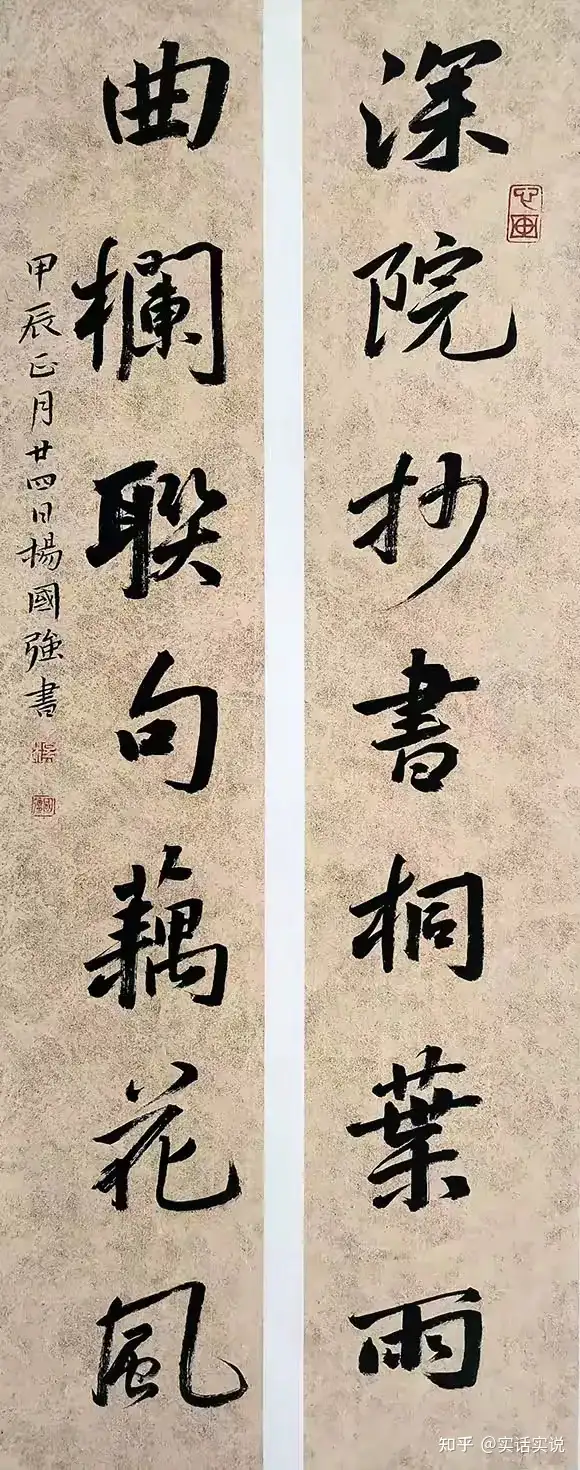 深院抄書桐葉雨
曲欄聯句藕花風
甲辰正月廿四日楊國強書
知乎 @实话实说